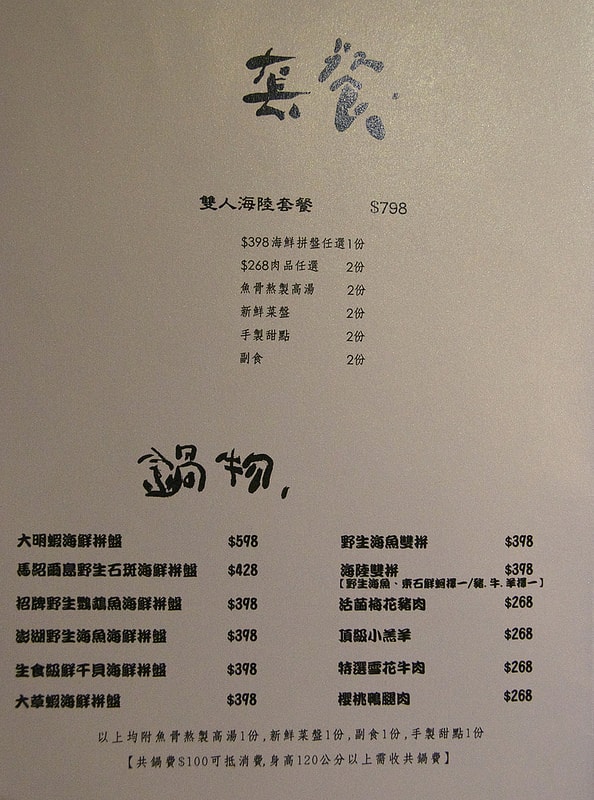 套餐
雙人海陸套餐 $798
$398海鮮拼盤任選1份
$268肉品任選 2份
魚骨熬製高湯 2份
新鮮菜盤 2份
手製甜點 2份
副食 2份
鍋物
大明蝦海鮮拼盤 $598
馬昭爾島野生石斑海鮮拼盤 $428
招牌野生鸚鵡魚海鮮拼盤 $398
澎湖野生海魚海鮮拼盤 $398
生食級鮮干貝海鮮拼盤 $398
大草蝦海鮮拼盤 $398
野生海魚雙拼 $398
海陸雙拼 $398
[野生海魚、東石鮮蚵擇一/豬.牛.羊擇一]
活菌梅花豬肉 $268
頂級小羔羊 $268
特選雪花牛肉 $268
櫻桃鴨腿肉 $268
以上均附魚骨熬製高湯1份,新鮮菜盤1份,副食1份,手製甜點1份
【共鍋費$100可抵消費,身高120公分以上需收共鍋費】